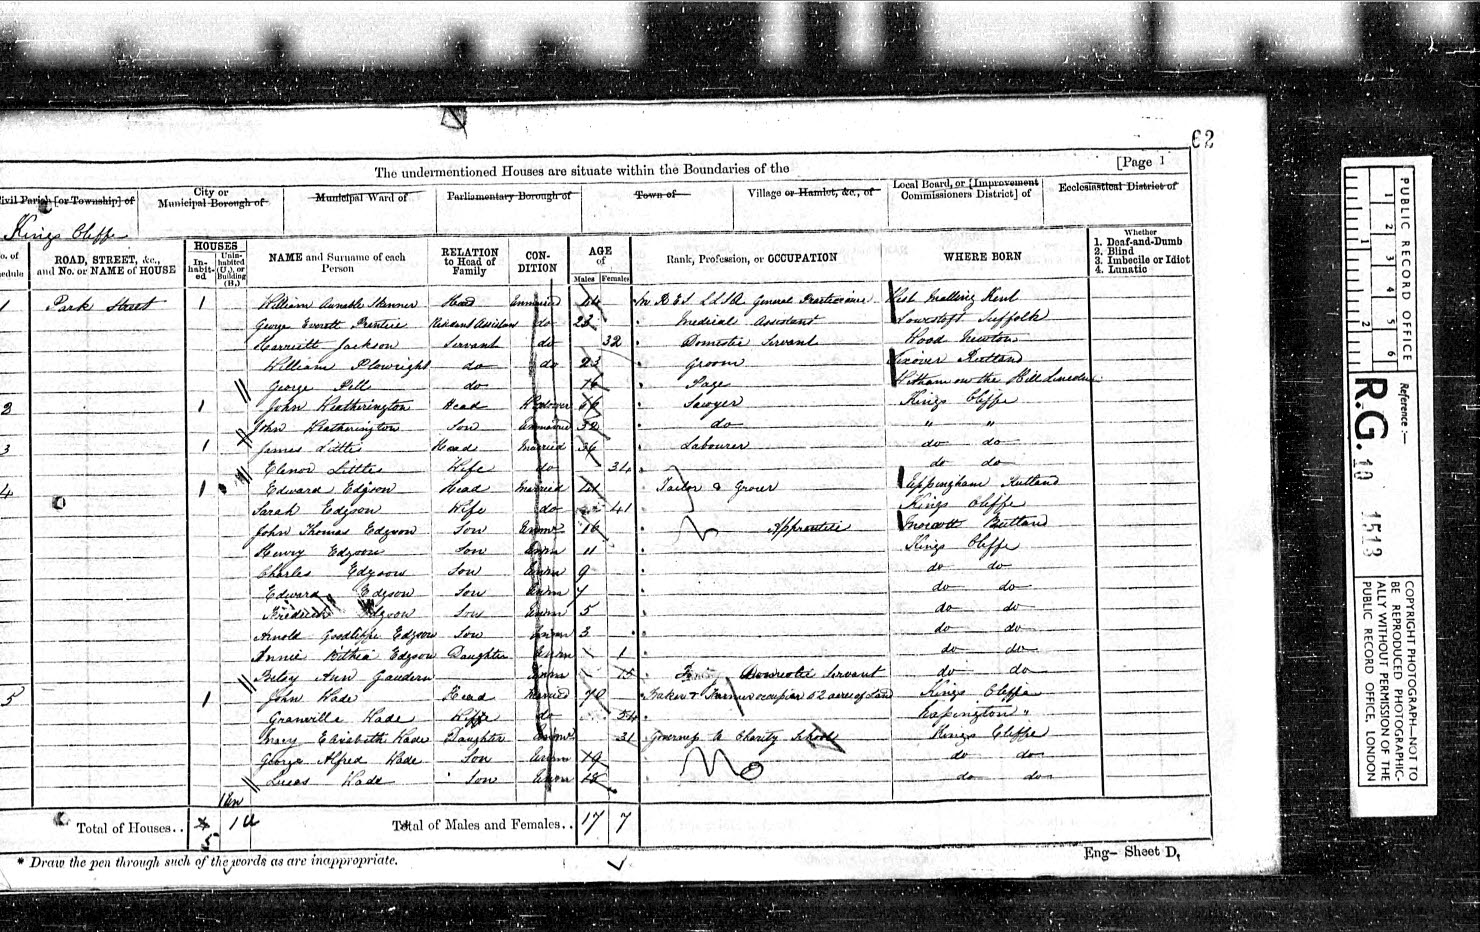 62
[Page 1
The undermentioned Houses are situate within the Boundaries of the
Civil Parish [or Township] of City or Municipal Borough of Municipal Ward of Parliamentary Borough of Town of Village or Hamlet, &c., of Local Board, or [Improvement Commissioners District] of Ecclesiastical District of
Kings Cliffe
No. of Schedule ROAD, STREET, &c., and No. or NAME of HOUSE HOUSES Inhabited Uninhabited (U.), or Building (B.) NAME and Surname of each Person RELATION to Head of Family CONDITION AGE of Males Females Rank, Profession, or OCCUPATION WHERE BORN Whether 1. Deaf-and-Dumb 2. Blind 3. Imbecile or Idiot 4. Lunatic
1 Park Street 1 William Skinner Head Unmarried 44 General Practitioner West Malling Kent
George Everett Prentice Resident Assistant do 23 Medical Assistant Lowestoft Suffolk
Harriett Jackson Servant do 32 Domestic Servant Wood Newton
William Plowright do do 23 Groom Tixover Rutland
George Pell do 16 Page Witham on the Hill Lincoln
2 1 John Weatherington Head Widower 66 Sawyer Kings Cliffe
John Weatherington Son Unmarried 32 do " "
3 1 James Little Head Married 36 Labourer do do
Elenor Little Wife do 34 do do
4 1 Edward Edgson Head Married 41 Tailor & Grocer Uppingham Rutland
Sarah Edgson Wife do 41 Kings Cliffe
John Thomas Edgson Son Unm 16 Apprentice Morcott Rutland
Henry Edgson Son Unm 11 Kings Cliffe
Charles Edgson Son Unm 9 do do
Edward Edgson Son Unm 7 do do
Frederick Edgson Son Unm 5 do do
Arnold Goodliffe Edgson Son Unm 3 do do
Annie Edgson Daughter Unm 1 do do
Betsy Ann Gaudern Unm 15 Domestic Servant do do
5 1 John Wade Head Married 70 Baker & Farmer occupier 52 acres of Land Kings Cliffe
Granville Wade Wife do 54 "
Mary Elisibeth Wade Daughter Unm 31 Governess to Charity School Kings Cliffe
George Alfred Wade Son Unm 19 do do
Lucas Wade Son Unm 18 do do
Total of Houses.. 5 1 U Total of Males and Females.. 17 7
* Draw the pen through such of the words as are inappropriate.
Eng— Sheet D.
PUBLIC RECORD OFFICE
1 2 3 4 5 6
1 2
Reference :—
R.G. 10 1513
COPYRIGHT PHOTOGRAPH—NOT TO
BE REPRODUCED PHOTOGRAPHIC-
ALLY WITHOUT PERMISSION OF THE
PUBLIC RECORD OFFICE, LONDON